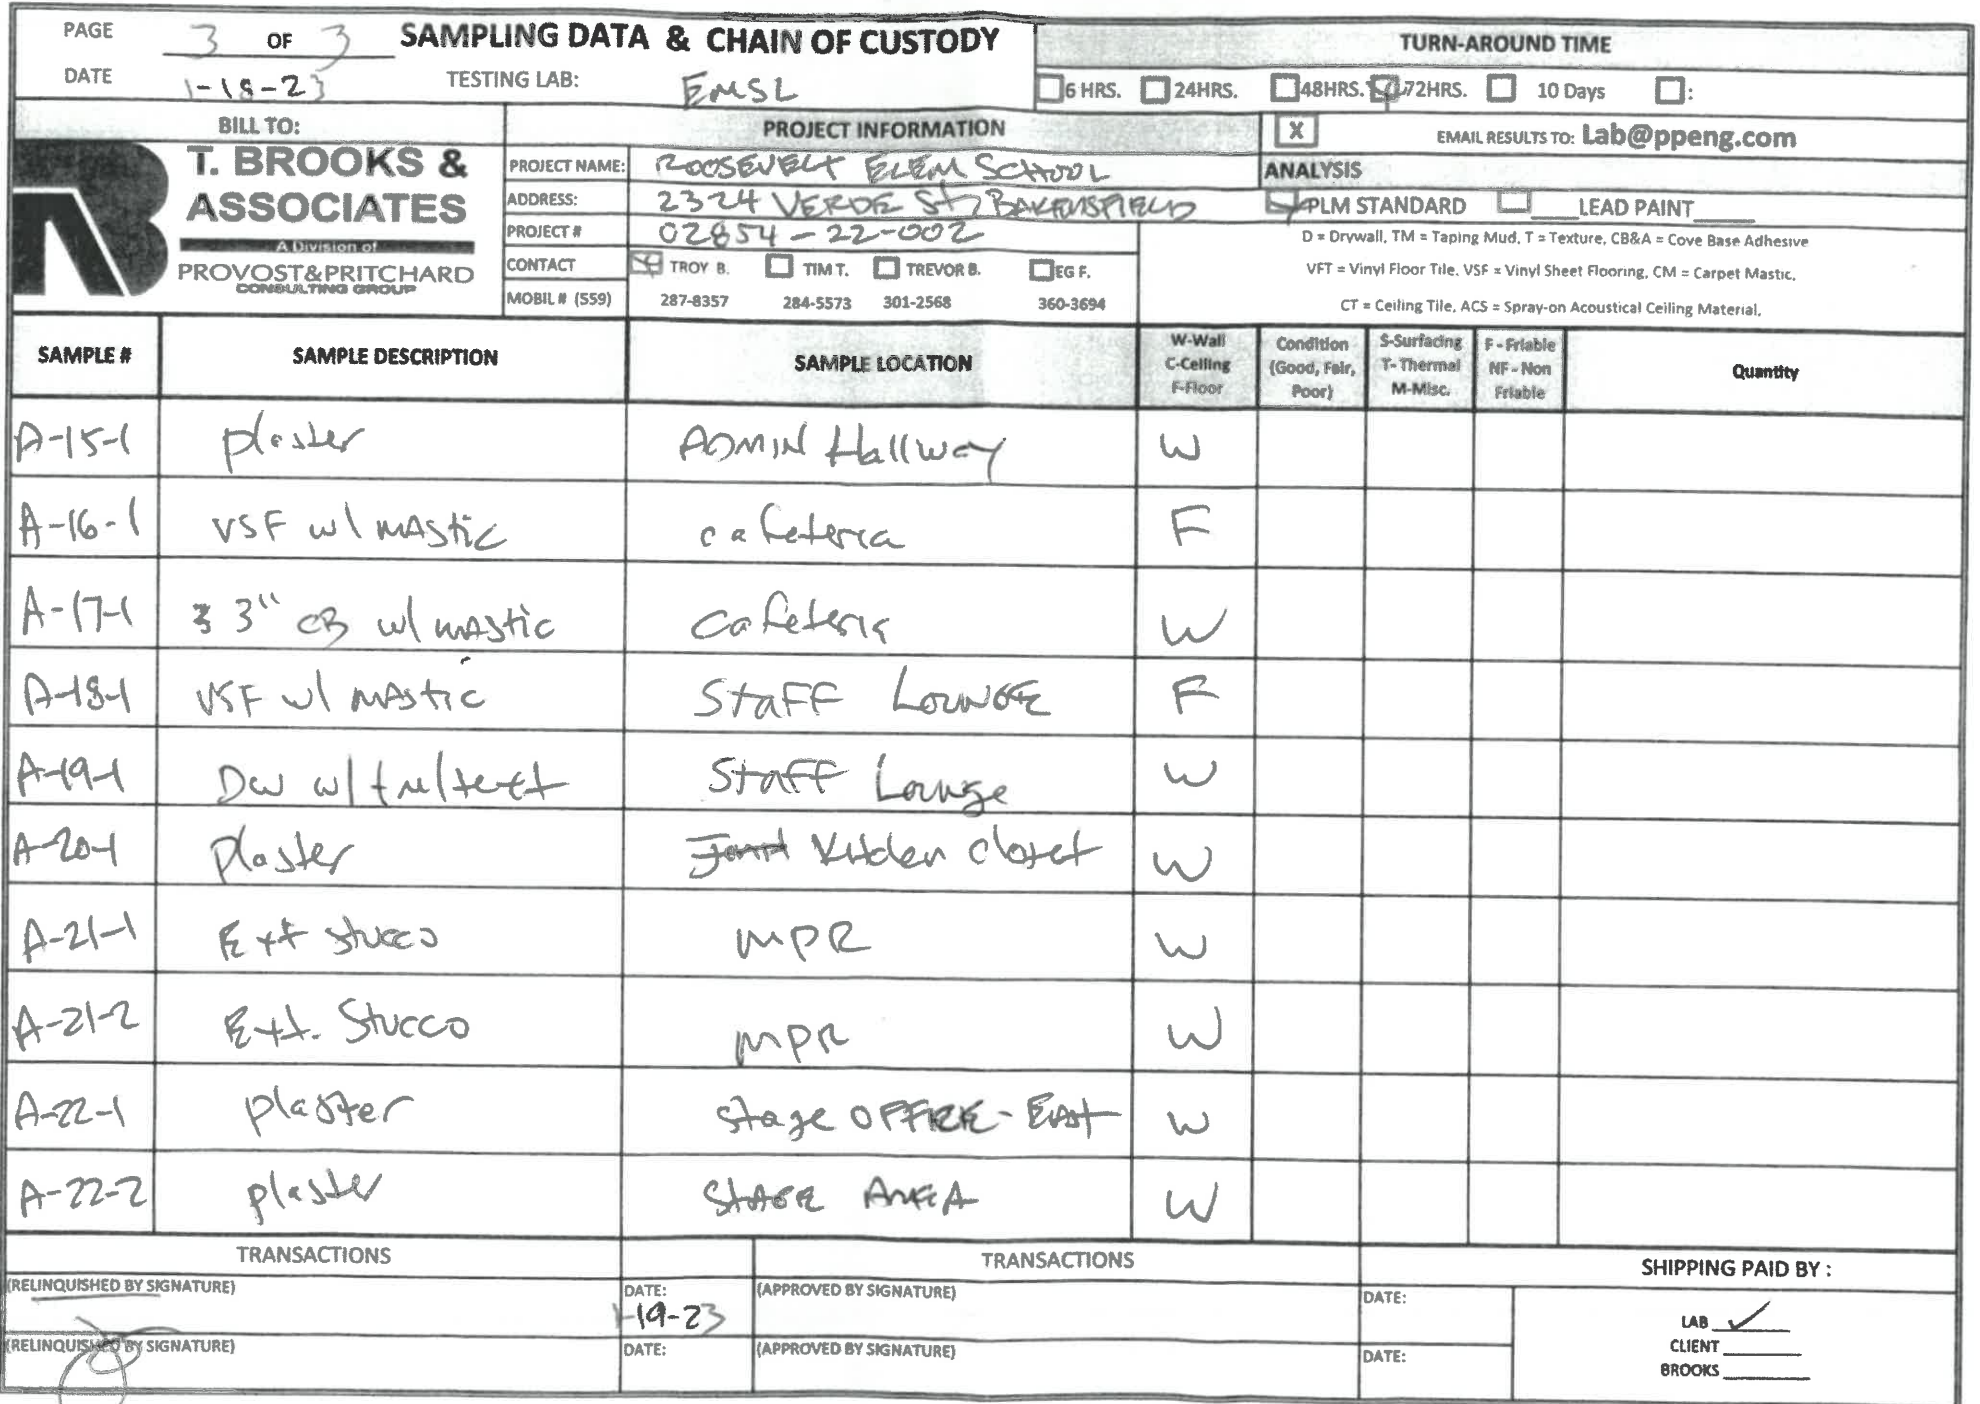 PAGE 3 OF 3 SAMPLING DATA & CHAIN OF CUSTODY
DATE 1-18-23 TESTING LAB: EMSL
TURN-AROUND TIME
6 HRS. 24HRS. 48HRS. 72HRS. 10 Days :
BILL TO:
T. BROOKS &
ASSOCIATES
A Division of
PROVOST&PRITCHARD
CONSULTING GROUP
PROJECT INFORMATION
PROJECT NAME: ROOSEVELT ELEM SCHOOL
ADDRESS: 2324 VERDE St, BAKERSFIELD
PROJECT # 02854-22-002
CONTACT TROY B. TIM T. TREVOR B. EG F.
MOBIL # (559) 287-8357 284-5573 301-2568 360-3694
X EMAIL RESULTS TO: Lab@ppeng.com
ANALYSIS
PLM STANDARD LEAD PAINT
D = Drywall, TM = Taping Mud, T = Texture, CB&A = Cove Base Adhesive
VFT = Vinyl Floor Tile, VSF = Vinyl Sheet Flooring, CM = Carpet Mastic,
CT = Ceiling Tile, ACS = Spray-on Acoustical Ceiling Material,
SAMPLE # SAMPLE DESCRIPTION SAMPLE LOCATION
W-Wall
C-Ceiling
F-Floor
Condition
(Good, Fair,
Poor)
S-Surfacing
T-Thermal
M-Misc.
F - Friable
NF - Non
Friable
Quantity
A-15-1 plaster ADMIN Hallway W
A-16-1 VSF w/ mAstic cafeteria F
A-17-1 3" CB w/ mAstic Cafeteria W
A-18-1 VSF w/ mAstic STAFF LOUNGE F
A-19-1 DW w/ tm/text Staff Lounge W
A-20-1 plaster Kitchen closet W
A-21-1 Ext stucco MPR W
A-21-2 Ext. Stucco MPR W
A-22-1 plaster stage OFFICE - EAst W
A-22-2 plaster STAGE AREA W
TRANSACTIONS TRANSACTIONS SHIPPING PAID BY :
(RELINQUISHED BY SIGNATURE) DATE: 1-19-23 (APPROVED BY SIGNATURE) DATE:
(RELINQUISHED BY SIGNATURE) DATE: (APPROVED BY SIGNATURE) DATE:
LAB ✓
CLIENT
BROOKS